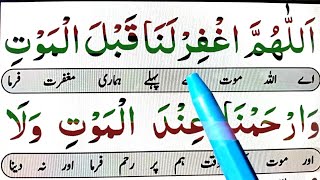 اَللّٰهُمَّ اغْفِرْ لَنَا قَبْلَ الْمَوْتِ
اے اللہ موت پہلے ہماری مغفرت فرما
وَارْحَمْنَا عِنْدَ الْمَوْتِ وَلَا
اور موت وقت ہم پر رحم فرما اور نہ دینا